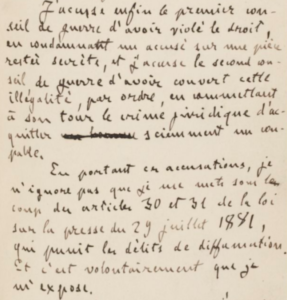 J'accuse enfin le premier con-
seil de guerre d'avoir violé le droit,
en condamnant un accusé sur une pièce
restée secrète, et j'accuse le second con-
seil de guerre d'avoir couvert cette
illégalité, par ordre, en commettant
à son tour le crime juridique d'ac-
quitter sciemment un cou-
pable.
En portant ces accusations, je
n'ignore pas que je me mets sous le
coup des articles 30 et 31 de la loi
sur la presse du 29 juillet 1881,
qui punit les délits de diffamation.
Et c'est volontairement que je
m'expose.